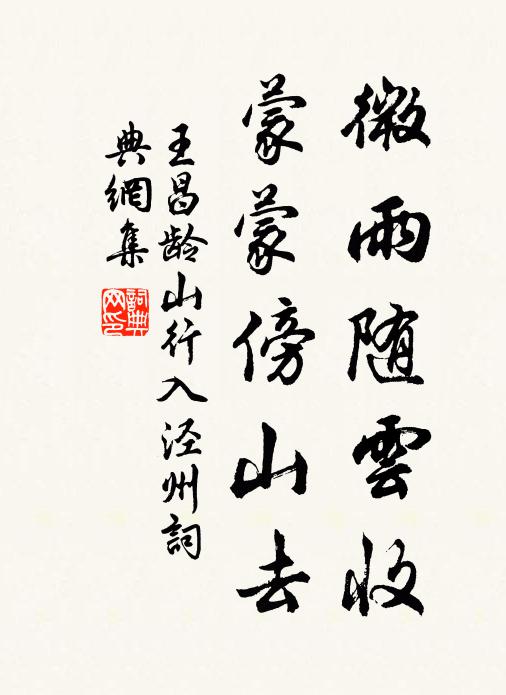 微雨随雲收
蒙蒙傍山去
王昌龄山行入泾州詞
典網集
詞典網印